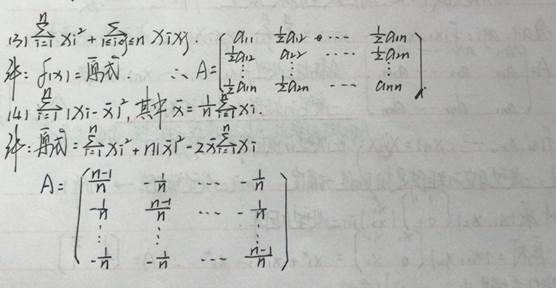 (3) $\sum_{i=1}^{n} x_i^2 + \sum_{1 \le i < j \le n} x_i x_j$
解: f(x) = 原式. ∴ A = $\begin{pmatrix} a_{11} & \frac{1}{2}a_{12} & \cdots & \frac{1}{2}a_{1n} \\ \frac{1}{2}a_{12} & a_{22} & \cdots & \frac{1}{2}a_{2n} \\ \vdots & \vdots & & \vdots \\ \frac{1}{2}a_{1n} & \frac{1}{2}a_{2n} & \cdots & a_{nn} \end{pmatrix}$
(4) $\sum_{i=1}^{n} (x_i - \bar{x})^2$, 其中 $\bar{x} = \frac{1}{n}\sum_{i=1}^{n} x_i$.
解: 原式 = $\sum_{i=1}^{n} x_i^2 + n(\bar{x})^2 - 2\bar{x}\sum_{i=1}^{n} x_i$
A = $\begin{pmatrix} \frac{n-1}{n} & -\frac{1}{n} & \cdots & -\frac{1}{n} \\ -\frac{1}{n} & \frac{n-1}{n} & \cdots & -\frac{1}{n} \\ \vdots & \vdots & & \vdots \\ -\frac{1}{n} & -\frac{1}{n} & \cdots & \frac{n-1}{n} \end{pmatrix}$